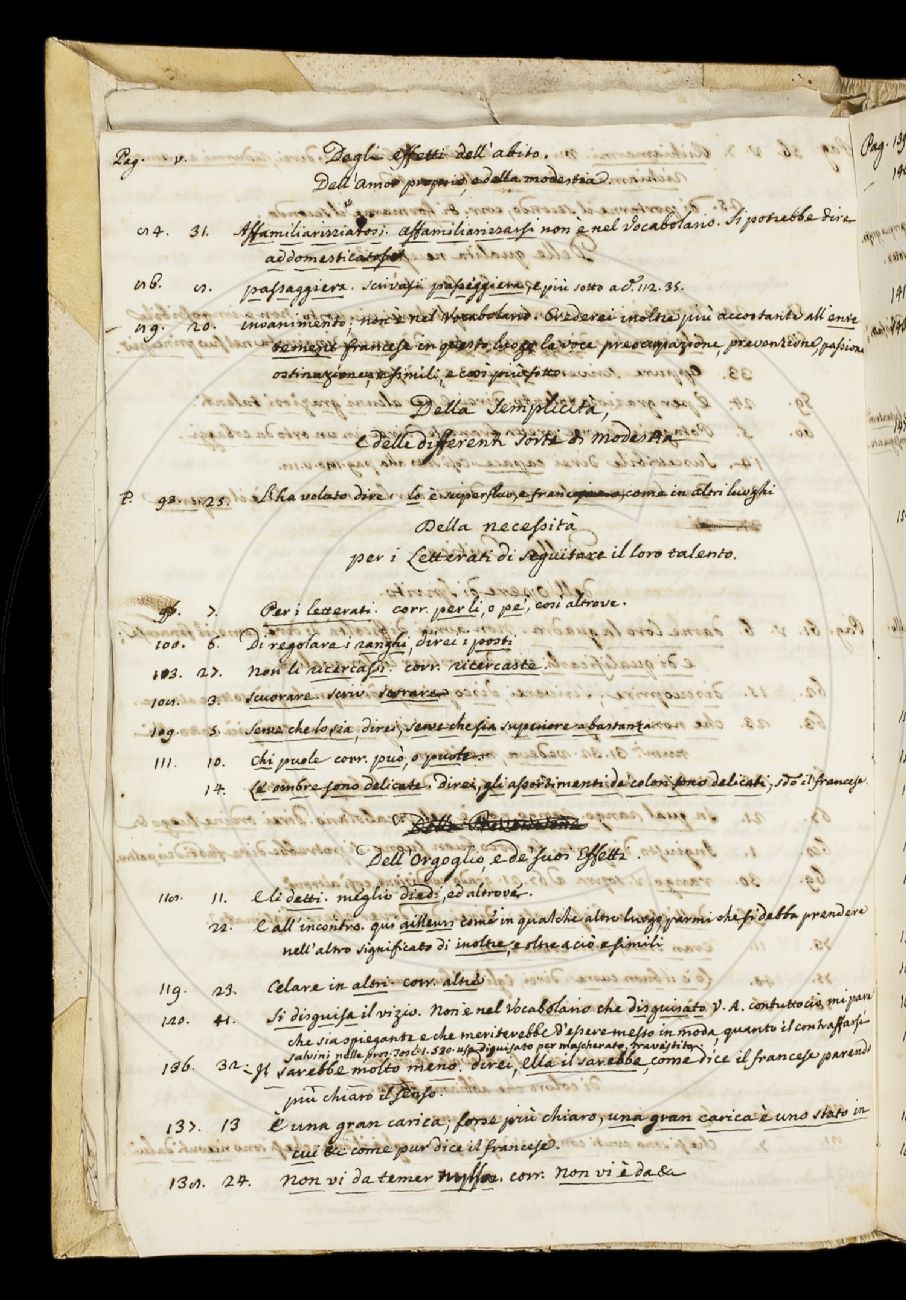 Pag. v. Degli effetti dell'abito.
Dell'Amor proprio, e della modestia.
84. 31. Affamiliarizziatosi. affamiliarizzarsi non è nel Vocabolario. Si potrebbe dire
addomesticatosi
86. 8. passaggiera. scrivasi passeggiera, e più sotto a c. 112. 35.
89. 20. invanimento, non è nel Vocabolario. Crederei inoltre più accostante all'ente
tement francese in questo luogo la voce preoccupazione, prevenzione, passione
ostinazione, e simili, e così più sotto
Della Semplicità,
e delle differenti sorte di modestia
P. 92. 25. L'ha voluto dire. lo è superfluo, e come in altri luoghi
Della necessità
per i Letterati di seguitare il loro talento.
98. 7. Per i letterati. corr. per li, o pe', così altrove.
100. 6. Di regolare i ranghi, direi i posti
103. 27. Non li ricercassi. corr. ricercaste.
108. 3. scuorare. scriv. scorare
109. 5. Serve che lo sia, direi, serve che sia superiore abastanza
111. 10. Chi puole corr. può, o puote.
14. Le ombre sono delicate. direi, gli assortimenti de colori sono delicati, sdo il francese.
Dell'Orgoglio, e de' suoi Effetti.
118. 11. e li detti. meglio diedi, ed altrove.
22. E all'incontro. qui ailleurs come in qualche altro luogo, parmi che si debba prendere
nell'altro significato di inoltre, e oltre a ciò e simili
119. 23. Celare in altri. corr. altrè
120. 41. Si disguisa il vizio. Non è nel Vocabolario che disguisato V. A. contuttociò mi pare
che sia spiegante e che meriterebbe d'essere messo in moda, quanto il contraffarsi
Salvini nelle pros. Tosc. 1. 530 usa disguisato per mascherato, travestito.
136. 32. Il sarebbe molto meno. direi, Ella il sarebbe, come dice il francese parendo
più chiaro il senso.
137. 13 È una gran carica, forse più chiaro, una gran carica è uno stato in
cui &c come pur dice il francese.
138. 24. Non vi da temer corr. Non vi è da &c
Pag. 139